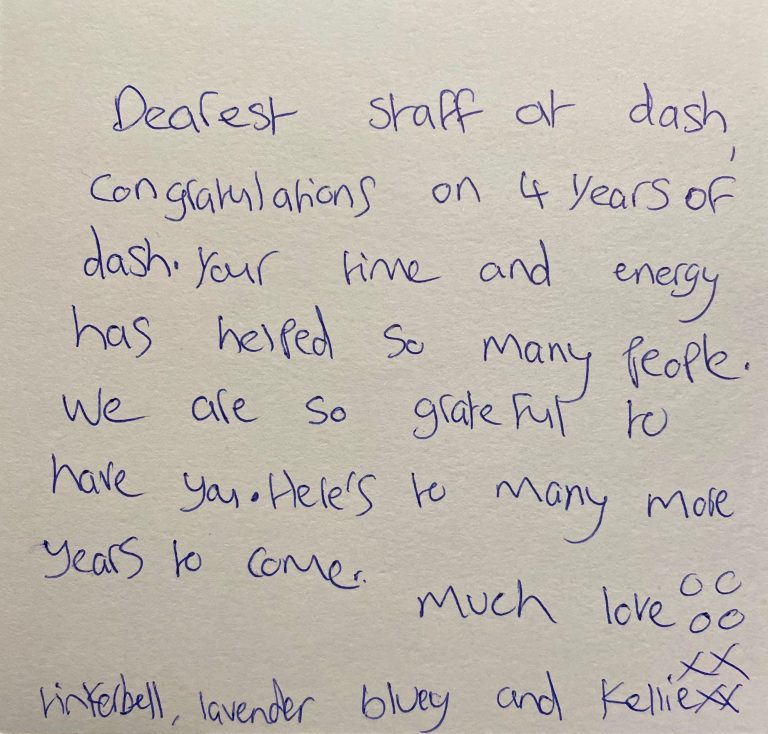 Dearest staff at dash,
congratulations on 4 years of
dash. Your time and energy
has helped so many people.
We are so grateful to
have you. Here's to many more
years to come.
much love oo
oo
xx
tinkerbell, lavender bluey and Kelliexx